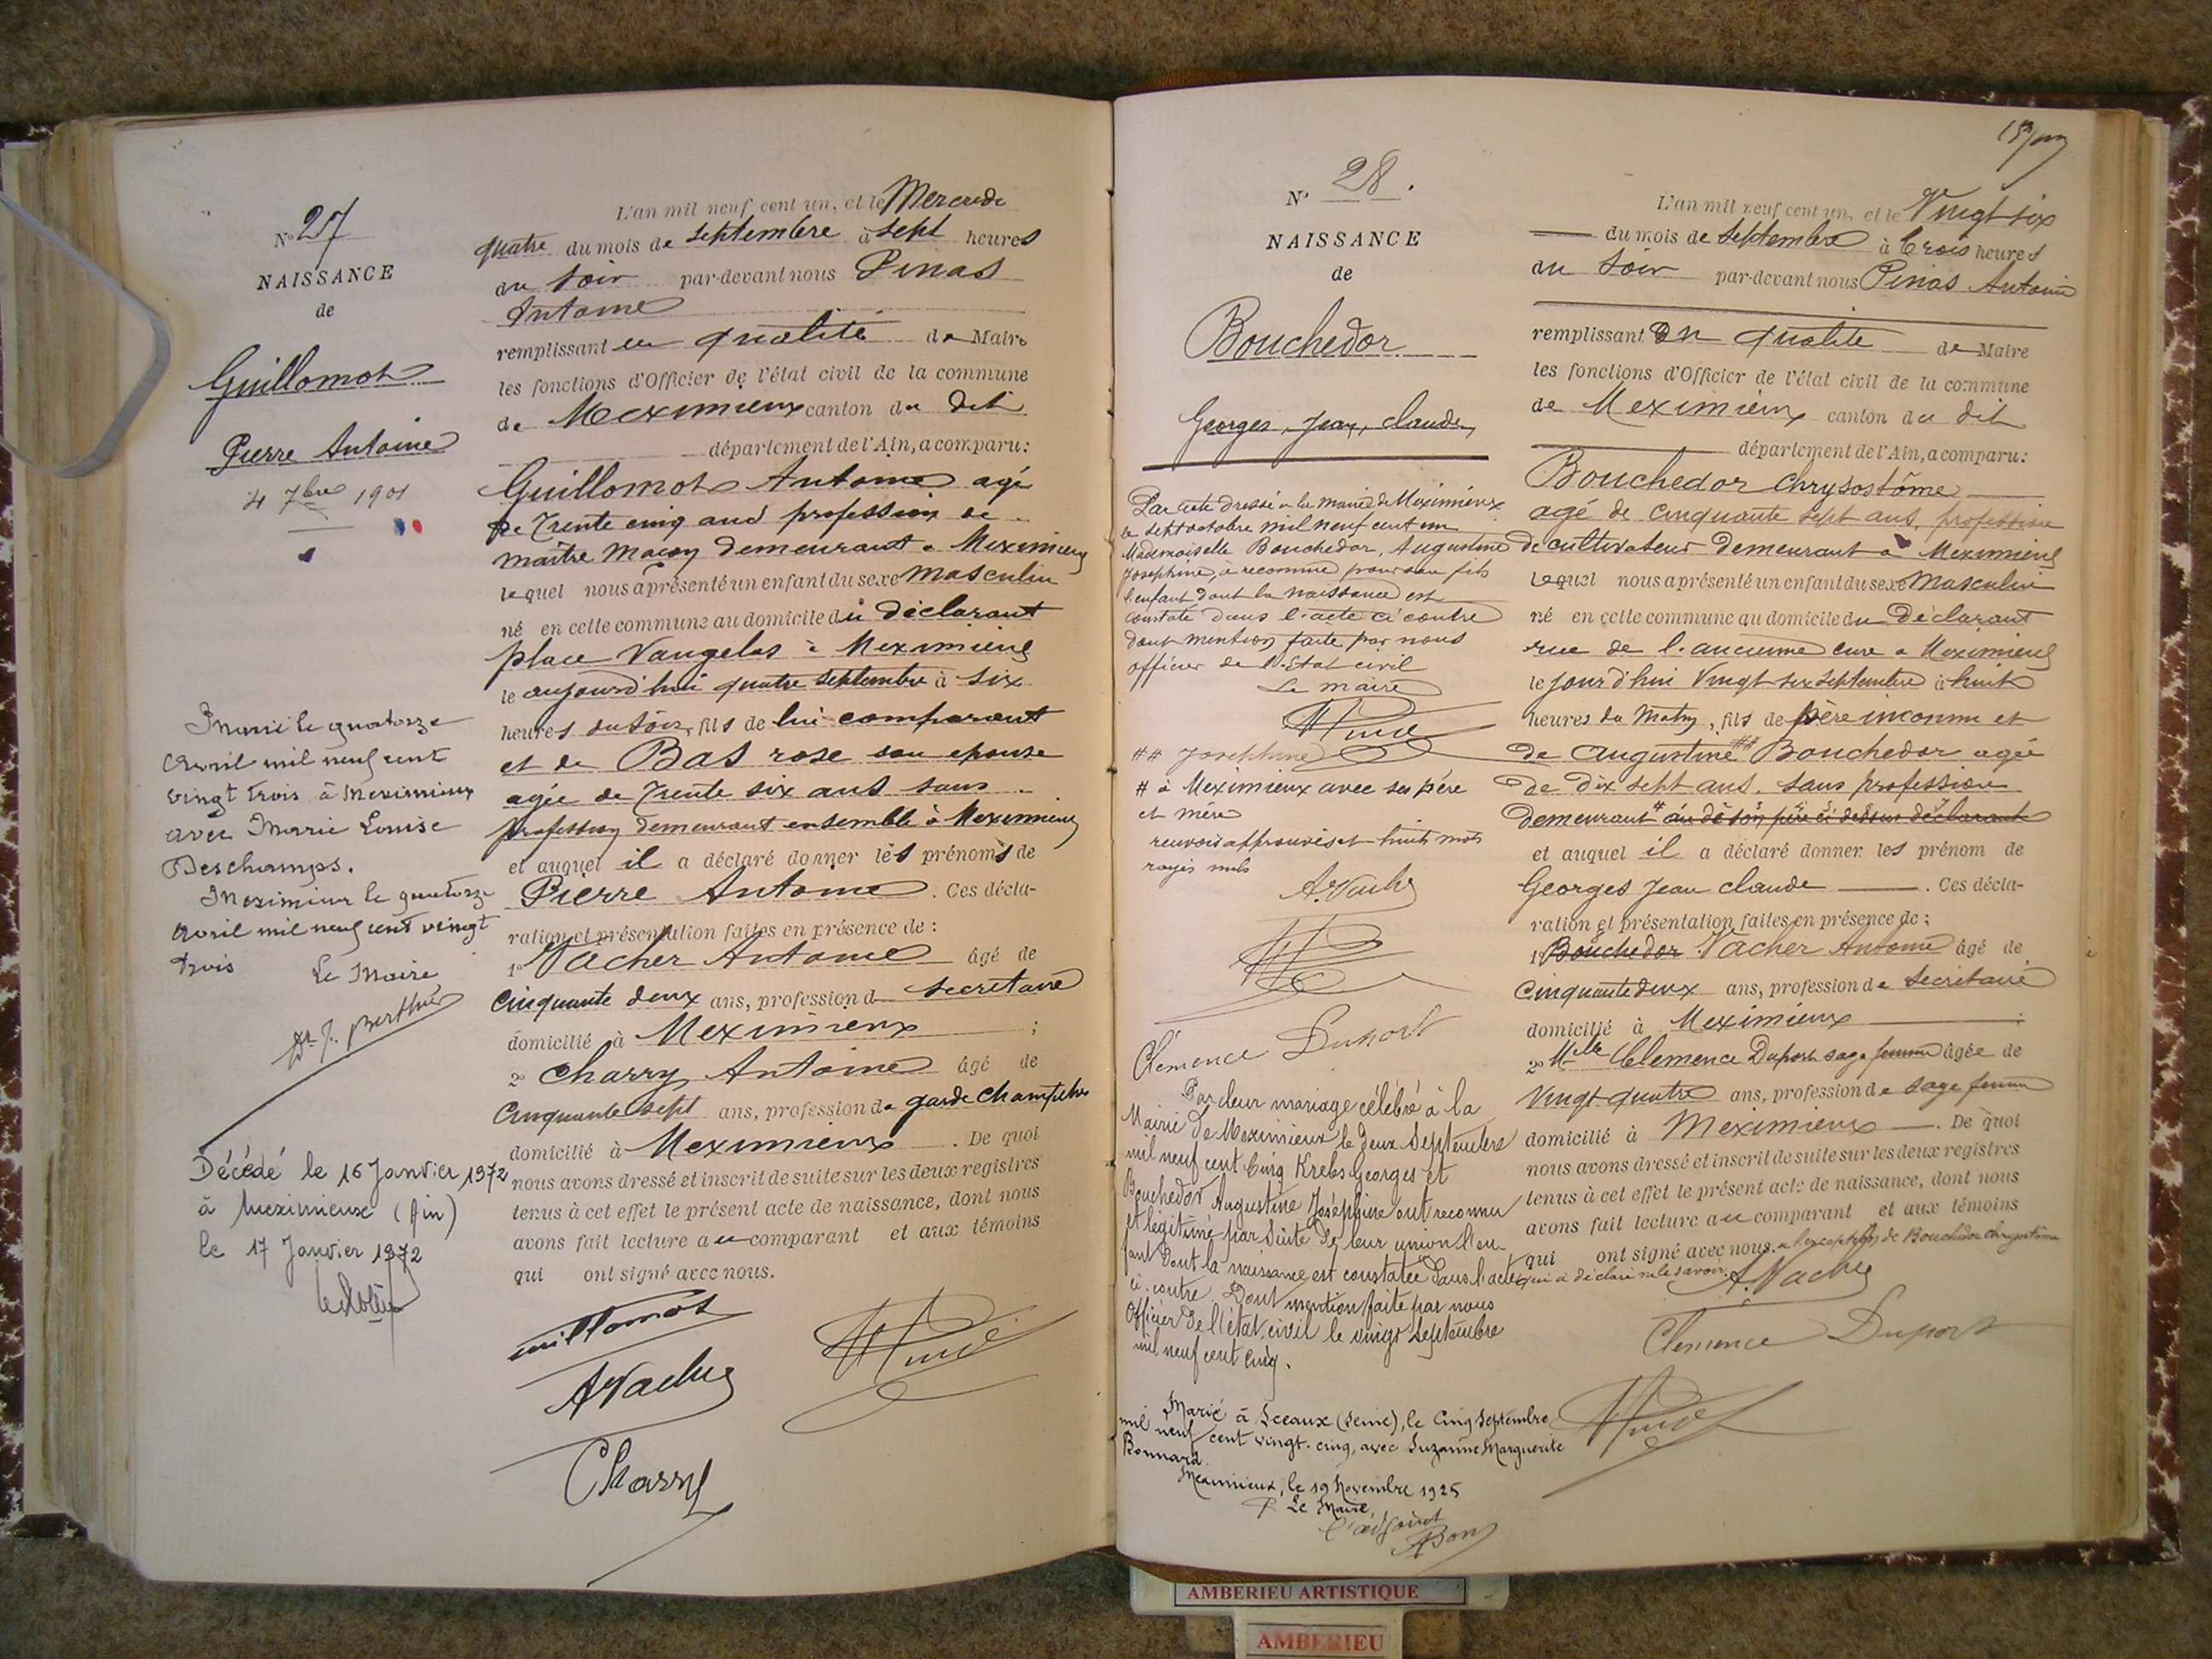 No 27
NAISSANCE
de
Guillomot
Pierre Antoine
4 7bre 1901
Marié le quatorze
Avril mil neuf cent
vingt trois à Meximieux
avec Marie Louise
Deschamps.
Meximieux le quatorze
Avril mil neuf cent vingt
trois Le Maire
Dr. J. Berthier
Décédé le 16 Janvier 1972
à Meximieux (Ain)
le 17 Janvier 1972
L'an mil neuf cent un, et le Mercredi
quatre du mois de septembre à sept heures
du soir par-devant nous Pinas
Antoine
remplissant en qualité de Maire
les fonctions d'Officier de l'état civil de la commune
de Meximieux canton du dit
département de l'Ain, a comparu:
Guillomot Antoine agé
de Trente cinq ans profession de
maître maçon demeurant a Meximieux
lequel nous a présenté un enfant du sexe masculin
né en cette commune au domicile du déclarant
place Vaugelas à Meximieux
le aujourd'hui quatre septembre à six
heures du soir, fils de lui comparant
et de Bas rose son epouse
agée de Trente six ans sans
profession demeurant ensemble à Meximieux
et auquel il a déclaré donner les prénoms de
Pierre Antoine. Ces décla-
ration et présentation faites en présence de :
1o Vacher Antoine âgé de
cinquante deux ans, profession d secretaire
domicilié à Meximieux ;
2o Charry Antoine âgé de
Cinquante sept ans, profession de garde champêtre
domicilié à Meximieux. De quoi
nous avons dressé et inscrit de suite sur les deux registres
tenus à cet effet le présent acte de naissance, dont nous
avons fait lecture au comparant et aux témoins
qui ont signé avec nous.
Guillomot
AVacher
Charry
No 28.
NAISSANCE
de
Bouchedor
Georges, Jean, claude,
Par acte dressé a la mairie de Meximieux
le sept octobre mil neuf cent un
Mademoiselle Bouchedor, Augustine
Josephine, à reconnu pour son fils
l'enfant dont la naissance est
constaté dans l'acte ci contre
dont mention faite par nous
officier de l'état civil
Le maire
## Josephine
# à Meximieux avec ses père
et mère
renvois approuvés et huit mots
rayés nuls
A. Vacher
Clémence Duport
Par leur mariage célébré à la
Mairie de Meximieux le deux Septembre
mil neuf cent Cinq Krebs Georges et
Bouchedor Augustine Joséphine ont reconnu
et légitimé par suite de leur union l'en-
fant dont la naissance est constatée dans l'acte
ci-contre. Dont mention faite par nous
Officier de l'état civil le vingt Septembre
mil neuf cent Cinq.
Marié à Sceaux (Seine), le Cinq Septembre
mil neuf cent vingt-cinq, avec Suzanne Marguerite
Bonnard.
Meximieux, le 19 Novembre 1925
P. Le Maire,
l'adjoint
ABon
L'an mil neuf cent un, et le Vingt six
du mois de septembre à trois heures
du soir par-devant nous Pinas Antoine
remplissant en qualité de Maire
les fonctions d'Officier de l'état civil de la commune
de Meximieux canton du dit
département de l'Ain, a comparu:
Bouchedor Chrysostôme
agé de cinquante sept ans, profession
de cultivateur demeurant a Meximieux
lequel nous a présenté un enfant du sexe masculin
né en cette commune au domicile du Déclarant
rue de l'ancienne cure a Meximieux
le jourd'hui Vingt six septembre à huit
heures du matin, fils de père inconnu et
de Augustine ## Bouchedor agée
de dix sept ans, sans profession
demeurant # au dè son père ci dessus déclarant
et auquel il a déclaré donner les prénom de
Georges Jean claude. Ces décla-
ration et présentation faites en présence de :
1o Bouchedor Vacher Antoine âgé de
Cinquante deux ans, profession de secrétaire
domicilié à Meximieux ;
2o Melle Clemence Duport sage femme âgée de
Vingt quatre ans, profession de sage femme
domicilié à Meximieux. De quoi
nous avons dressé et inscrit de suite sur les deux registres
tenus à cet effet le présent acte de naissance, dont nous
avons fait lecture au comparant et aux témoins
qui ont signé avec nous. a l'exception de Bouchedor chrysostôme
qui a déclaré ne le savoir.
A. Vacher
Clemence Duport
AMBERIEU ARTISTIQUE
AMBERIEU